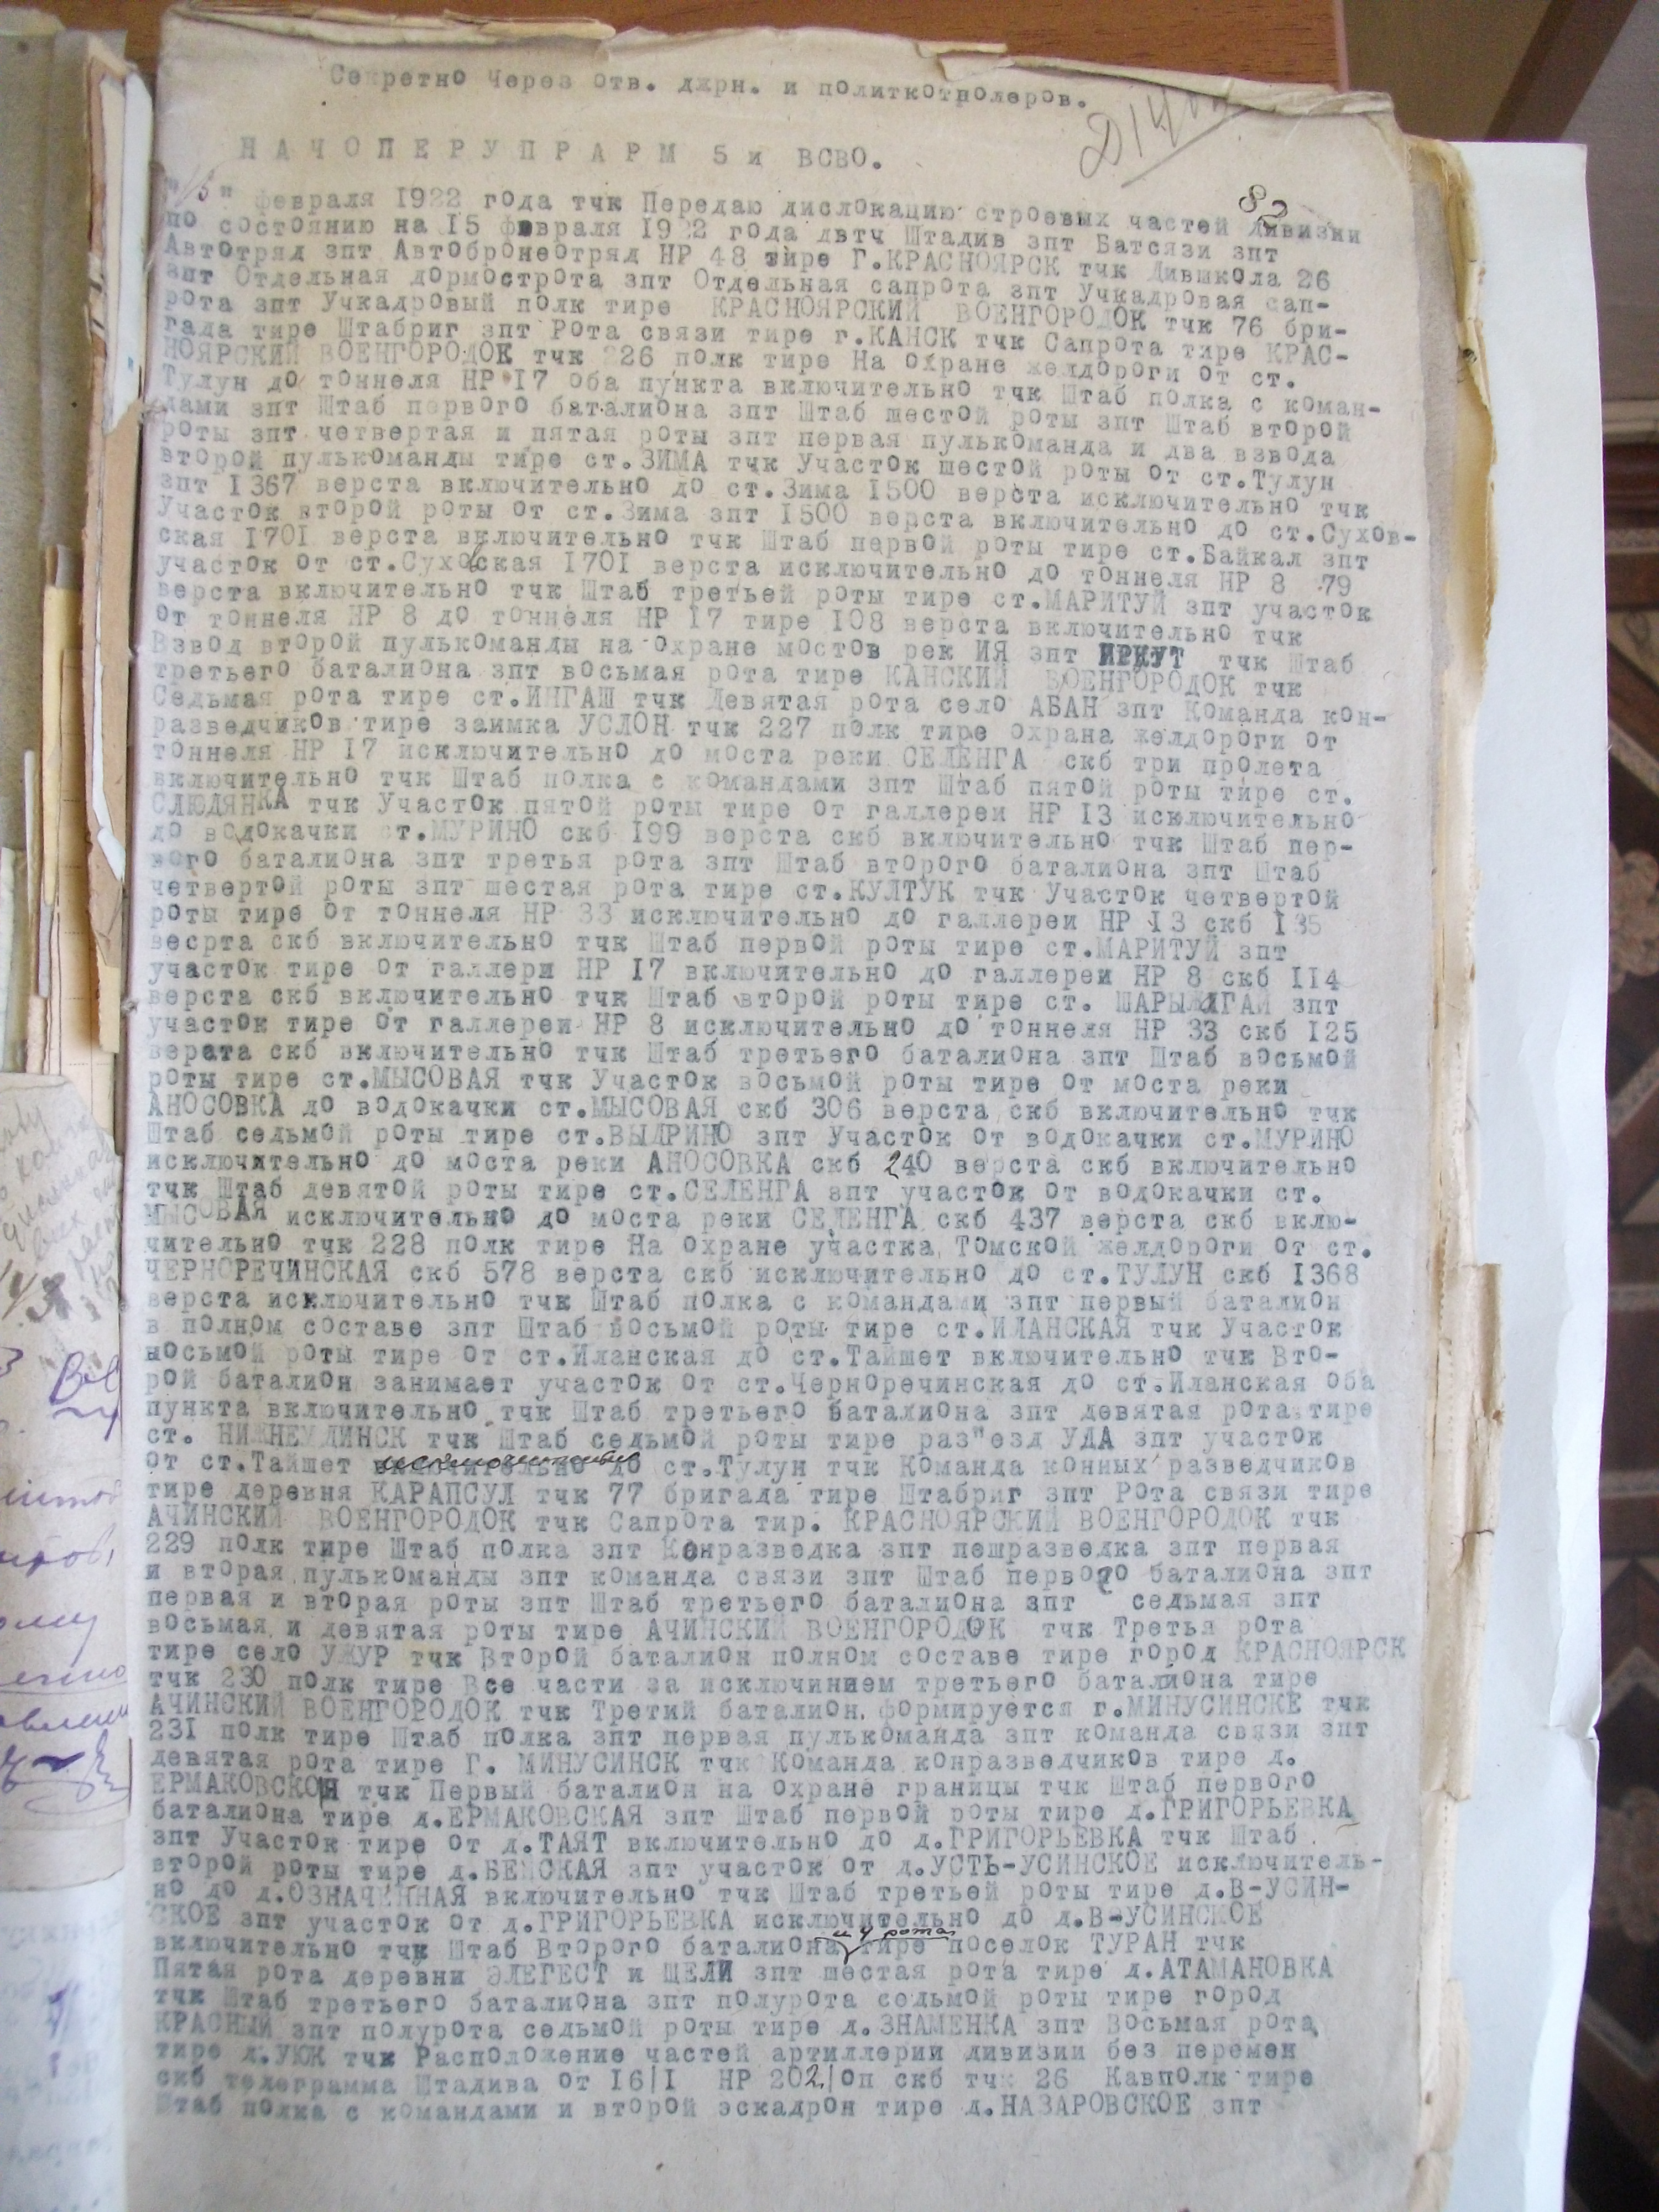 Секретно Через отв. джрн. и политкотнолеров.
НАЧОПЕРУПРАРМ 5 и ВСВО.
82
"15" февраля 1922 года тчк Передаю дислокацию строевых частей дивизии
по состоянию на 15 февраля 1922 года двтч Штадив зпт Батсязи зпт
Автотряд зпт Автобронеотряд НР 48 тире Г.КРАСНОЯРСК тчк Дившкола 26
зпт Отдельная дормострота зпт Отдельная сапрота зпт Учкадровая сап-
рота зпт Учкадровый полк тире КРАСНОЯРСКИЙ ВОЕНГОРОДОК тчк 76 бри-
гада тире Штабриг зпт Рота связи тире г.КАНСК тчк Сапрота тире КРАС-
НОЯРСКИЙ ВОЕНГОРОДОК тчк 226 полк тире На охране желдороги от ст.
Тулун до тоннеля НР 17 оба пункта включительно тчк Штаб полка с коман-
дами зпт Штаб первого баталиона зпт Штаб шестой роты зпт Штаб второй
роты зпт четвертая и пятая роты зпт первая пулькоманда и два взвода
второй пулькоманды тире ст.ЗИМА тчк Участок шестой роты от ст.Тулун
зпт 1367 верста включительно до ст.Зима 1500 верста исключительно тчк
Участок второй роты от ст.Зима зпт 1500 верста включительно до ст.Сухов-
ская 1701 верста включительно тчк Штаб первой роты тире ст.Байкал зпт
участок от ст.Суховская 1701 верста исключительно до тоннеля НР 8 79
верста включительно тчк Штаб третьей роты тире ст.МАРИТУЙ зпт участок
от тоннеля НР 8 до тоннеля НР 17 тире 108 верста включительно тчк
Взвод второй пулькоманды на охране мостов рек ИЯ зпт ИРКУТ тчк Штаб
третьего баталиона зпт восьмая рота тире КАНСКИЙ ВОЕНГОРОДОК тчк
Седьмая рота тире ст.ИНГАШ тчк Девятая рота село АБАН зпт Команда кон-
разведчиков тире заимка УСЛОН тчк 227 полк тире охрана желдороги от
тоннеля НР 17 исключительно до моста реки СЕЛЕНГА скб три пролета
включительно тчк Штаб полка с командами зпт Штаб пятой роты тире ст.
СЛЮДЯНКА тчк Участок пятой роты тире от галлереи НР 13 исключительно
до водокачки ст.МУРИНО скб 199 верста скб включительно тчк Штаб пер-
вого баталиона зпт третья рота зпт Штаб второго баталиона зпт Штаб
четвертой роты зпт шестая рота тире ст.КУЛТУК тчк Участок четвертой
роты тире от тоннеля НР 33 исключительно до галлереи НР 13 скб 135
весрта скб включительно тчк Штаб первой роты тире ст.МАРИТУЙ зпт
участок тире от галлери НР 17 включительно до галлереи НР 8 скб 114
верста скб включительно тчк Штаб второй роты тире ст. ШАРЫЖАЛГАЙ зпт
участок тире от галлереи НР 8 исключительно до тоннеля НР 33 скб 125
верата скб включительно тчк Штаб третьего баталиона зпт Штаб восьмой
роты тире ст.МЫСОВАЯ тчк Участок восьмой роты тире от моста реки
АНОСОВКА до водокачки ст.МЫСОВАЯ скб 306 верста скб включительно тчк
Штаб седьмой роты тире ст.ВЫДРИНО зпт Участок от водокачки ст.МУРИНО
исключительно до моста реки АНОСОВКА скб 240 верста скб включительно
тчк Штаб девятой роты тире ст.СЕЛЕНГА зпт участок от водокачки ст.
МЫСОВАЯ исключительно до моста реки СЕЛЕНГА скб 437 верста скб вклю-
чительно тчк 228 полк тире На охране участка Томской желдороги от ст.
ЧЕРНОРЕЧИНСКАЯ скб 578 верста скб исключительно до ст.ТУЛУН скб 1368
верста исключительно тчк Штаб полка с командами зпт первый баталион
в полном составе зпт Штаб восьмой роты тире ст.ИЛАНСКАЯ тчк Участок
восьмой роты тире от ст.Иланская до ст.Тайшет включительно тчк Вто-
рой баталион занимает участок от ст.Черноречинская до ст.Иланская оба
пункта включительно тчк Штаб третьего баталиона зпт девятая рота тире
ст. НИЖНЕУДИНСК тчк Штаб седьмой роты тире раз"езд УДА зпт участок
от ст.Тайшет исключительно до ст.Тулун тчк Команда конных разведчиков
тире деревня КАРАПСУЛ тчк 77 бригада тире Штабриг зпт Рота связи тире
АЧИНСКИЙ ВОЕНГОРОДОК тчк Сапрота тир. КРАСНОЯРСКИЙ ВОЕНГОРОДОК тчк
229 полк тире Штаб полка зпт Конразведка зпт пешразведка зпт первая
и вторая пулькоманды зпт команда связи зпт Штаб первого баталиона зпт
первая и вторая роты зпт Штаб третьего баталиона зпт седьмая зпт
восьмая и девятая роты тире АЧИНСКИЙ ВОЕНГОРОДОК тчк Третья рота
тире село УЖУР тчк Второй баталион полном составе тире город КРАСНОЯРСК
тчк 230 полк тире Все части за исключинием третьего баталиона тире
АЧИНСКИЙ ВОЕНГОРОДОК тчк Третий баталион формируется г.МИНУСИНСКЕ тчк
231 полк тире Штаб полка зпт первая пулькоманда зпт команда связи зпт
девятая рота тире Г. МИНУСИНСК тчк Команда конразведчиков тире д.
ЕРМАКОВСКОЙ тчк Первый баталион на охране границы тчк Штаб первого
баталиона тире д.ЕРМАКОВСКАЯ зпт Штаб первой роты тире д.ГРИГОРЬЕВКА
зпт Участок тире от д.ТАЯТ включительно до д.ГРИГОРЬЕВКА тчк Штаб
второй роты тире д.БЕЙСКАЯ зпт участок от д.УСТЬ-УСИНСКОЕ исключитель-
но до д.ОЗНАЧЕННАЯ включительно тчк Штаб третьей роты тире д.В-УСИН-
СКОЕ зпт участок от д.ГРИГОРЬЕВКА исключительно до д.В-УСИНСКОЕ
включительно тчк Штаб Второго баталиона и 4 рота тире поселок ТУРАН тчк
Пятая рота деревни ЭЛЕГЕСТ и ЩЕЛИ зпт шестая рота тире д.АТАМАНОВКА
тчк Штаб третьего баталиона зпт полурота седьмой роты тире город
КРАСНЫЙ зпт полурота седьмой роты тире д.ЗНАМЕНКА зпт Восьмая рота
тире д.УЮК тчк Расположение частей артиллерии дивизии без перемен
скб телеграмма Штадива от 16/1 НР 202/оп скб тчк 26 Кавполк тире
Штаб полка с командами и второй эскадрон тире д.НАЗАРОВСКОЕ зпт